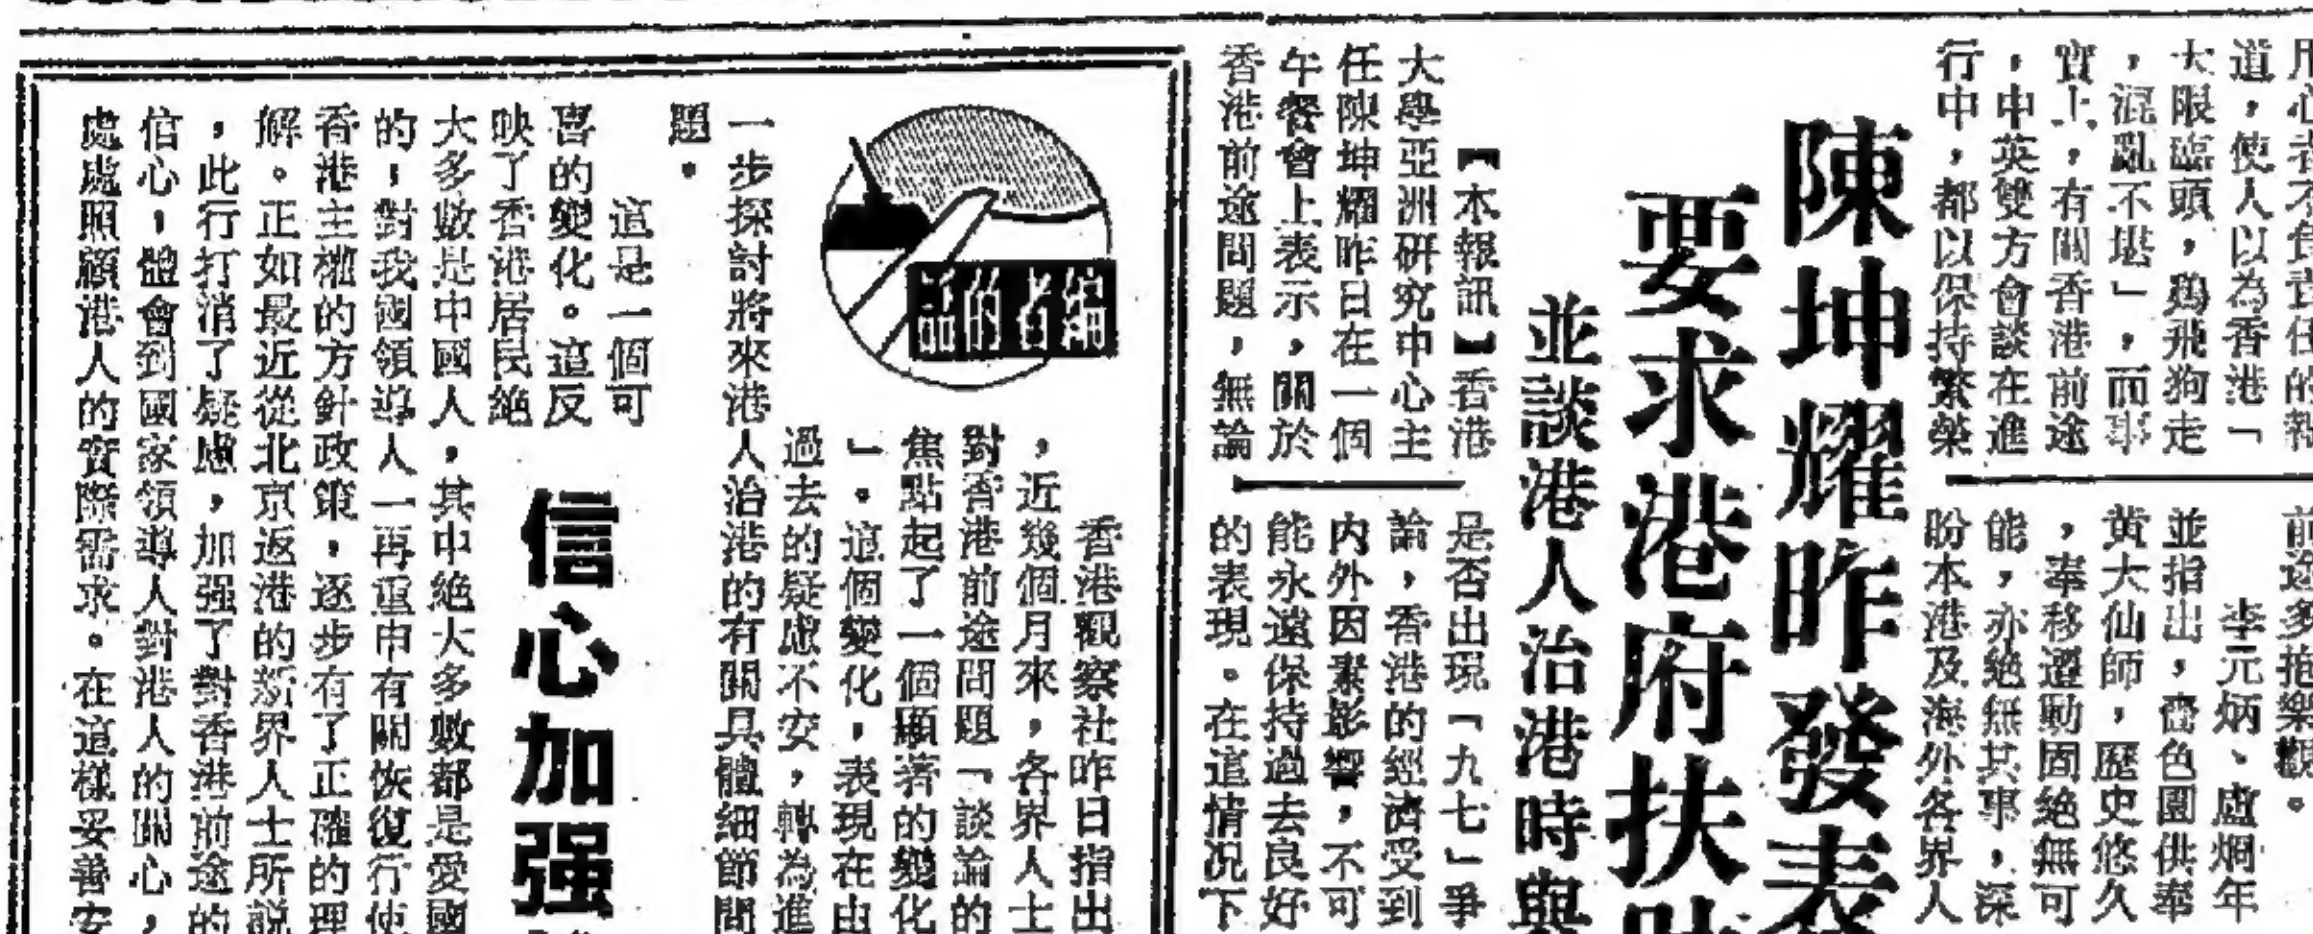 用心者不負責任的報
道，使人以為香港「
大限臨頭，鷄飛狗走
，混亂不堪」，而事
實上，有關香港前途
，中英雙方會談在進
行中，都以保持繁榮
前途多抱樂觀。
李元炳、盧烱年
並指出，嗇色園供奉
黃大仙師，歷史悠久
，奉移遷動固絕無可
能，亦絕無其事，深
盼本港及海外各界人
陳坤耀昨發表
要求港府扶
並談港人治港時與
【本報訊】香港
大學亞洲研究中心主
任陳坤耀昨日在一個
午餐會上表示，關於
香港前途問題，無論
是否出現「九七」爭
論，香港的經濟受到
内外因素影響，不可
能永遠保持過去良好
的表現。在這情況下
編者的話
香港觀察社昨日指出
，近幾個月來，各界人士
對香港前途問題「談論的
焦點起了一個顯著的變化
」。這個變化，表現在由
過去的疑慮不安，轉為進
一步探討將來港人治港的有關具體細節問
題。
信心加强
這是一個可
喜的變化。這反
映了香港居民絕
大多數是中國人，其中絕大多數都是愛國
的，對我國領導人一再重申有關恢復行使
香港主權的方針政策，逐步有了正確的理
解。正如最近從北京返港的新界人士所說
，此行打消了疑慮，加强了對香港前途的
信心，體會到國家領導人對港人的關心，
處處照顧港人的實際需求。在這樣妥善安